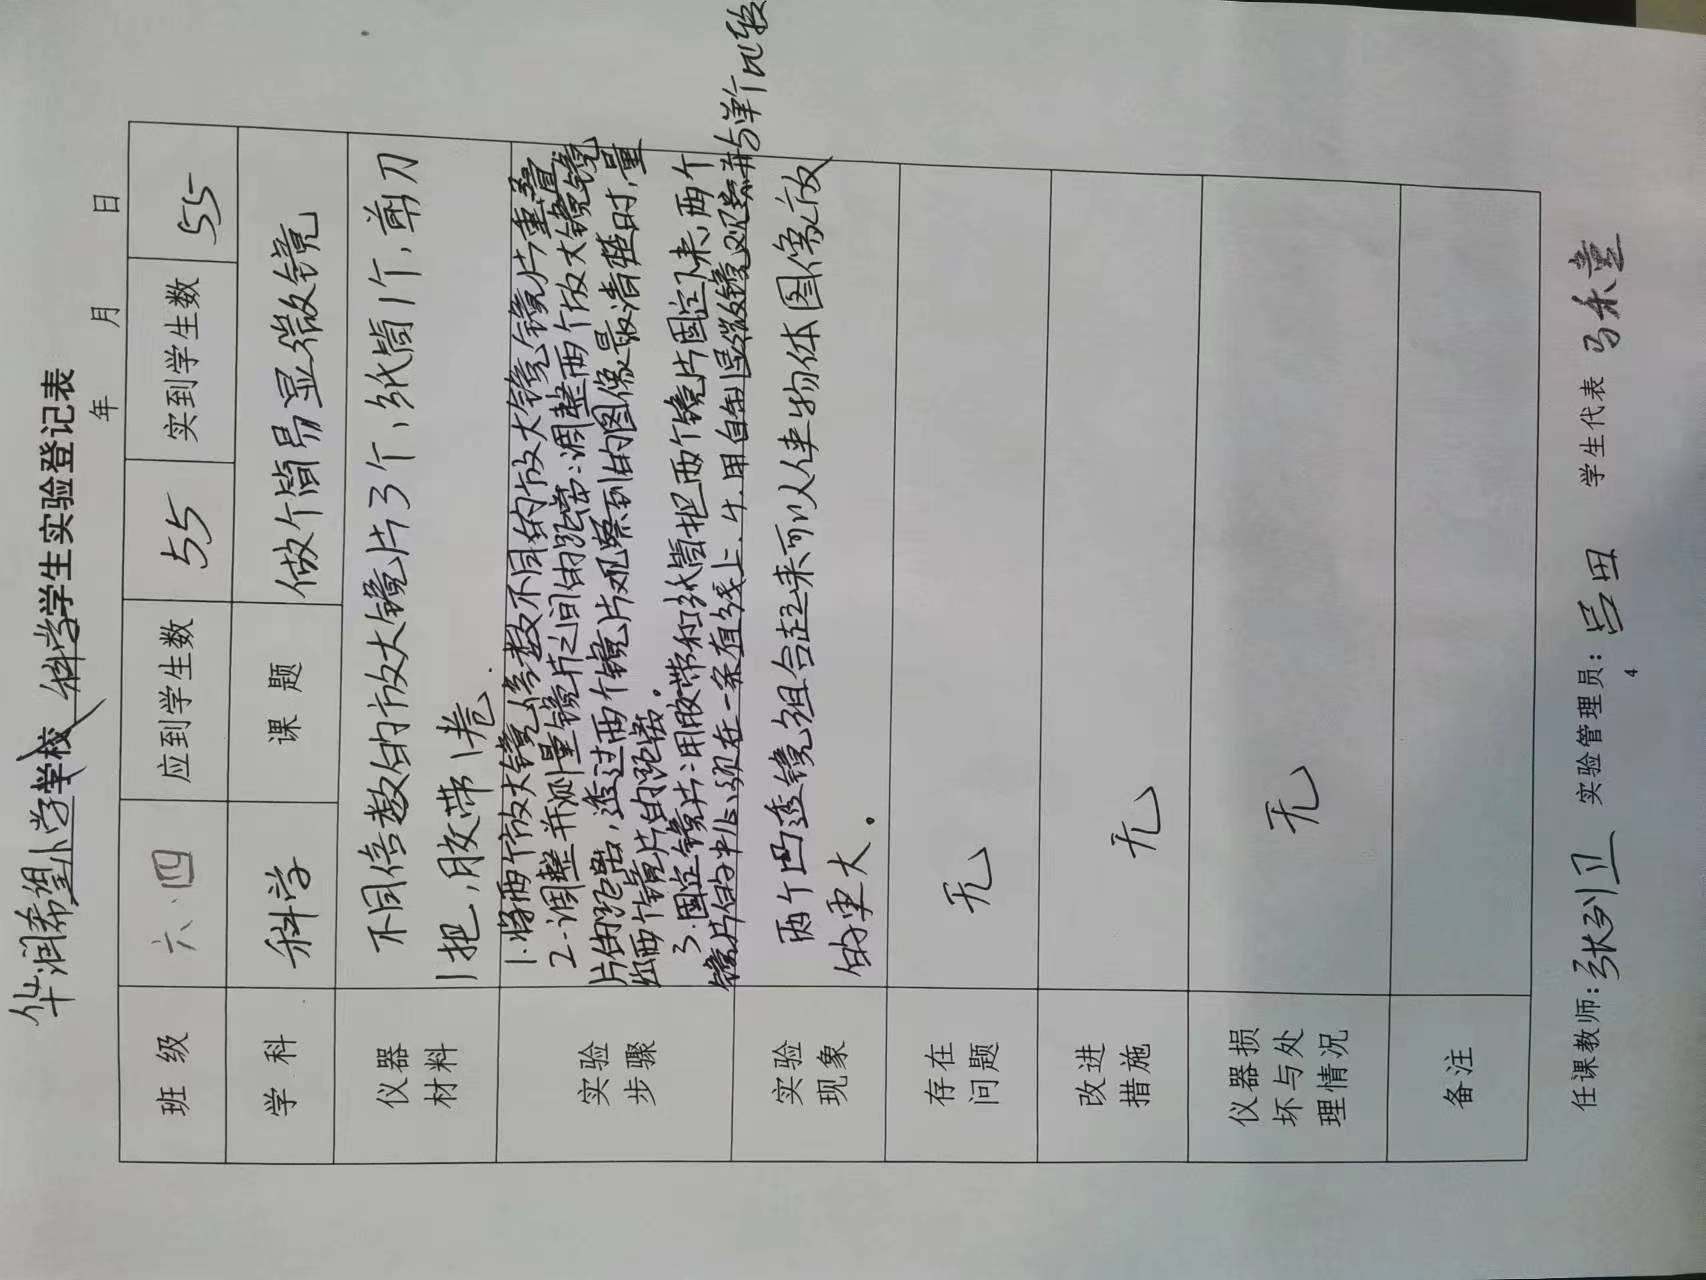 华润希望小学学校 科学学生实验登记表
年 月 日
班 级 六.四 应到学生数 55 实到学生数 55
学 科 科学 课 题 做个简易显微镜
仪器
材料
不同倍数的放大镜片3个,纸筒1个,剪刀
1把,胶带1卷.
实验
步骤
1.将两个放大镜倍数不同的放大镜镜片重叠
2.调整并测量镜片之间的距离:调整两个放大镜镜
片的距离,透过两个镜片观察到的图像最清楚时,量
出两个镜片的距离。
3.固定镜片:用胶带和纸筒把两个镜片固定下来,两个
镜片的中心须在一条直线上.4.用自制显微镜观察并与单个比较
实验
现象
两个凸透镜组合起来可以使物体图像放
的更大。
存在
问题
无
改进
措施
无
仪器损
坏与处
理情况
无
备注
任课教师:张列卫 实验管理员:吕田 学生代表 马禾童
4